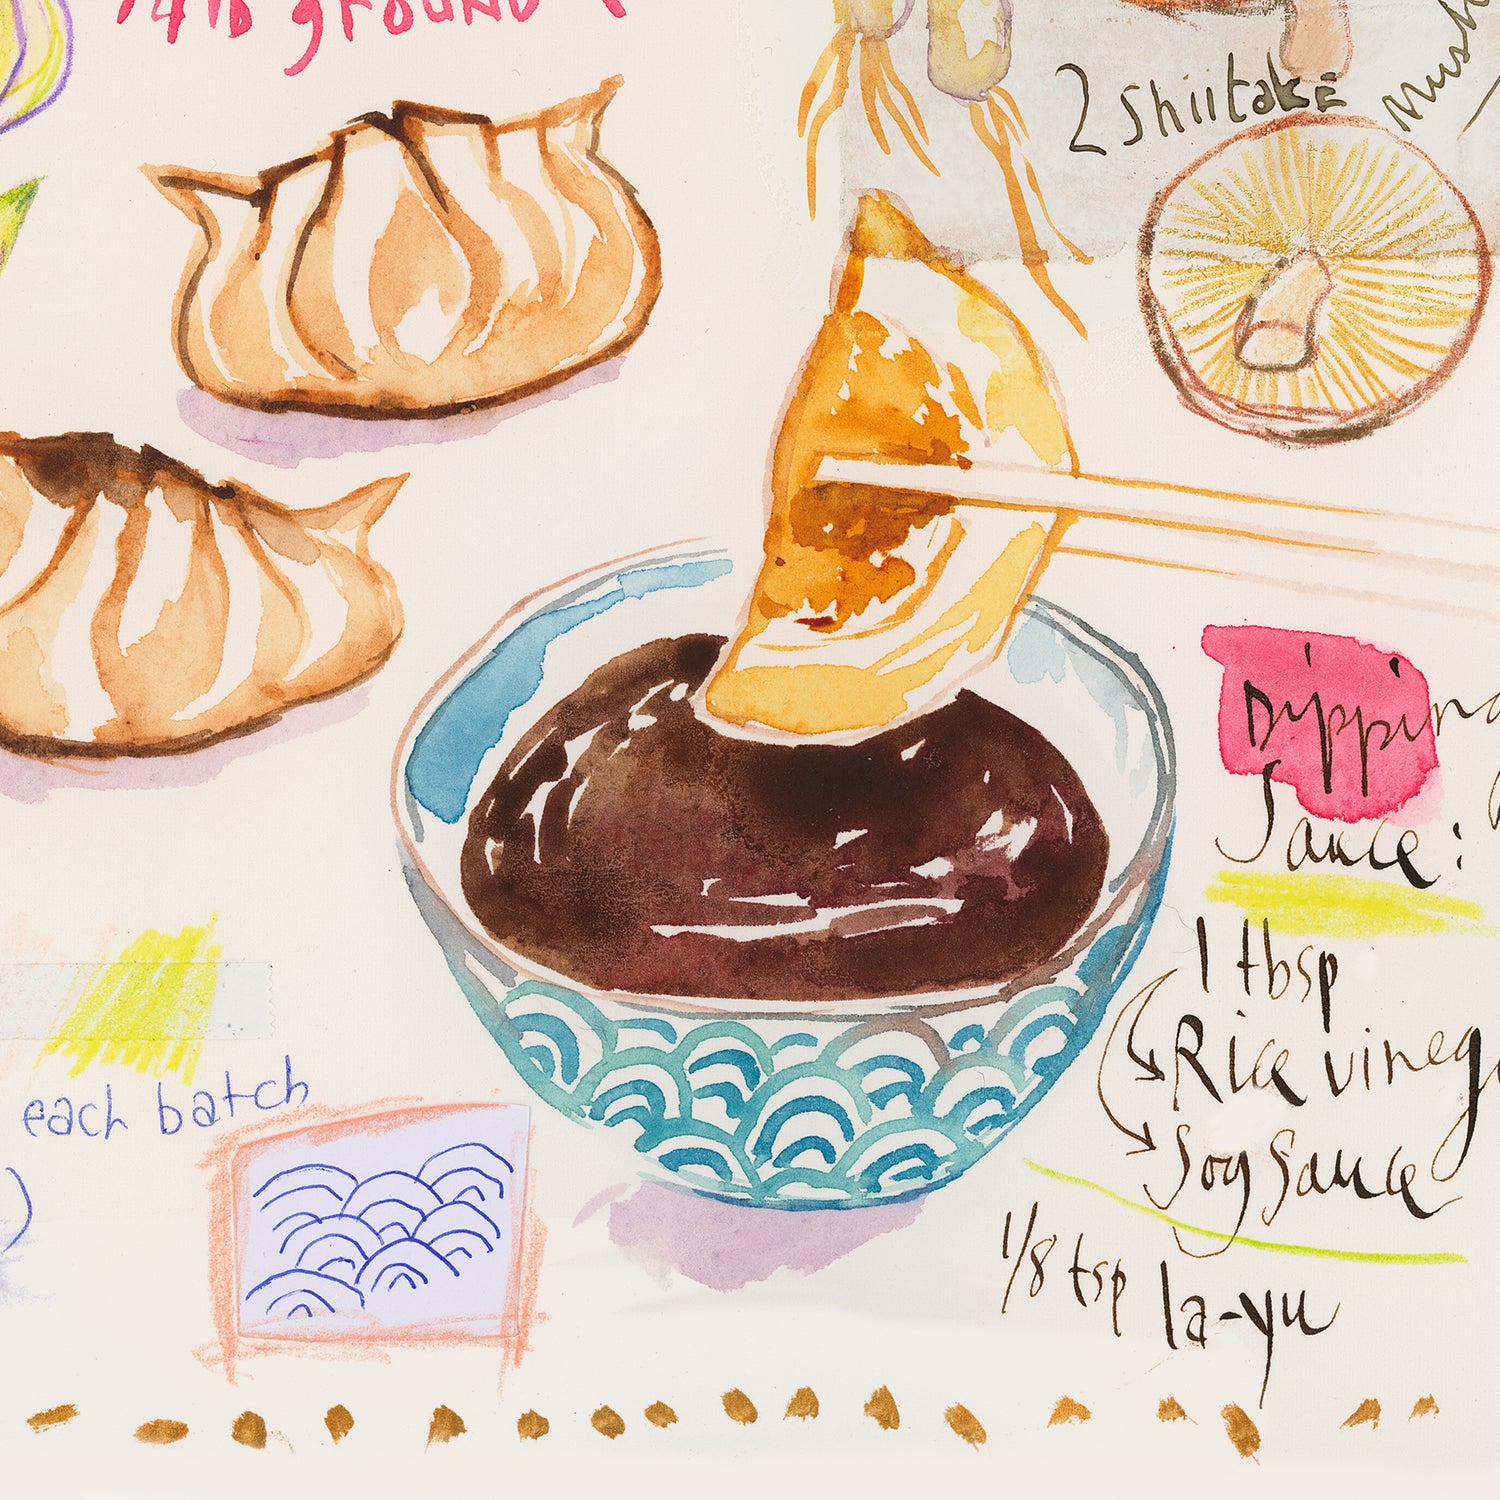 1/4 lb ground
2 Shiitake
Mush
Dipping
Sauce:
1 tbsp
Rice vineg
Soy Sauce
each batch
1/8 tsp la-yu